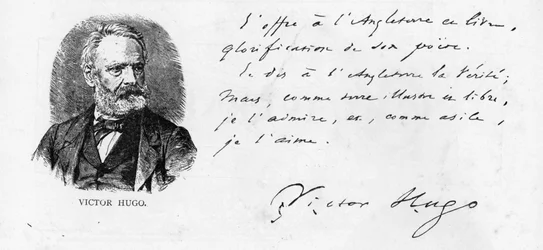 J'offre à l'Angleterre ce livre,
glorification de son poëte.
Je dis à l'Angleterre la vérité;
mais, comme terre illustre et libre,
je l'admire, et, comme asile,
je l'aime.
Victor Hugo
VICTOR HUGO.